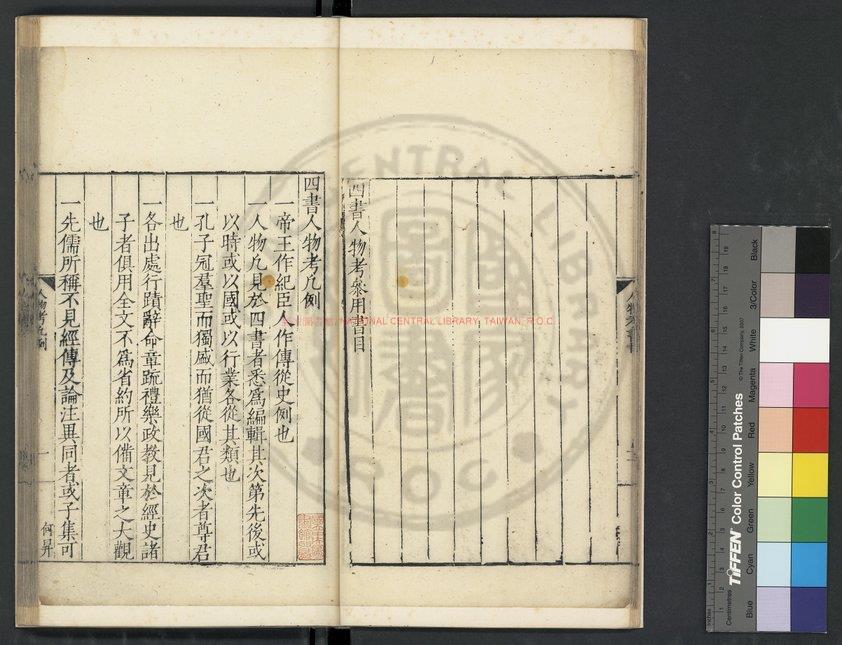 四書人物考叅用書目
四書人物考凡例
一帝王作紀臣人作傳從史例也
一人物凡見於四書者悉爲編輯其次第先後或
以時或以國或以行業各從其類也
一孔子冠羣聖而獨
一各出處行蹟辭命章疏禮樂政教見於經史諸
子者俱用全文不爲省約所以備文章之大觀
也
一先儒所稱不見經傳及論注異同者或子集可
人物考凡例
一
何昇
NATIONAL CENTRAL LIBRARY, TAIWAN, R.O.C.
TIFFEN Color Control Patches
© The Tiffen Company, 2007
Centimetres
Blue
Cyan
Green
Yellow
Red
Magenta
White
3/Color
Black